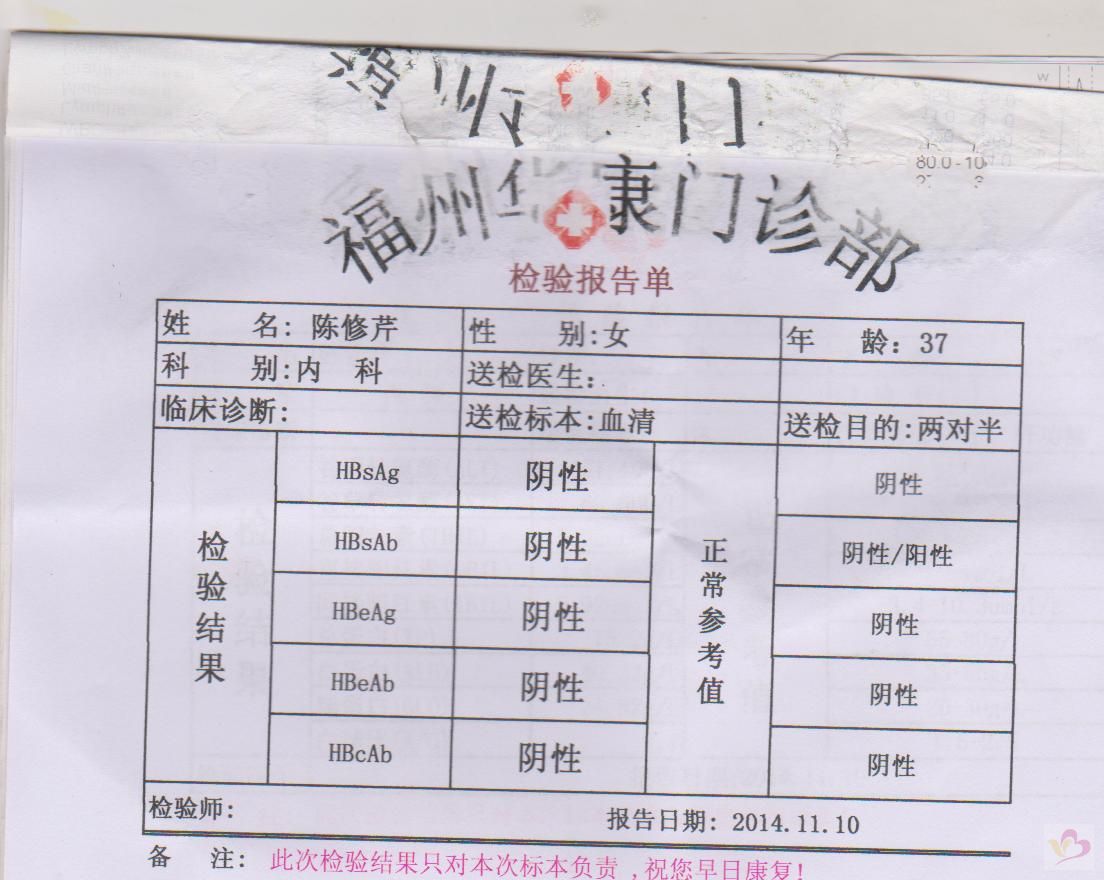 福州华康门诊部
检验报告单
姓 名: 陈修芹 性 别:女 年 龄: 37
科 别:内 科 送检医生:
临床诊断: 送检标本:血清 送检目的:两对半
检验结果 正常参考值
HBsAg 阴性 阴性
HBsAb 阴性 阴性/阳性
HBeAg 阴性 阴性
HBeAb 阴性 阴性
HBcAb 阴性 阴性
检验师: 报告日期: 2014.11.10
备 注: 此次检验结果只对本次标本负责,祝您早日康复!